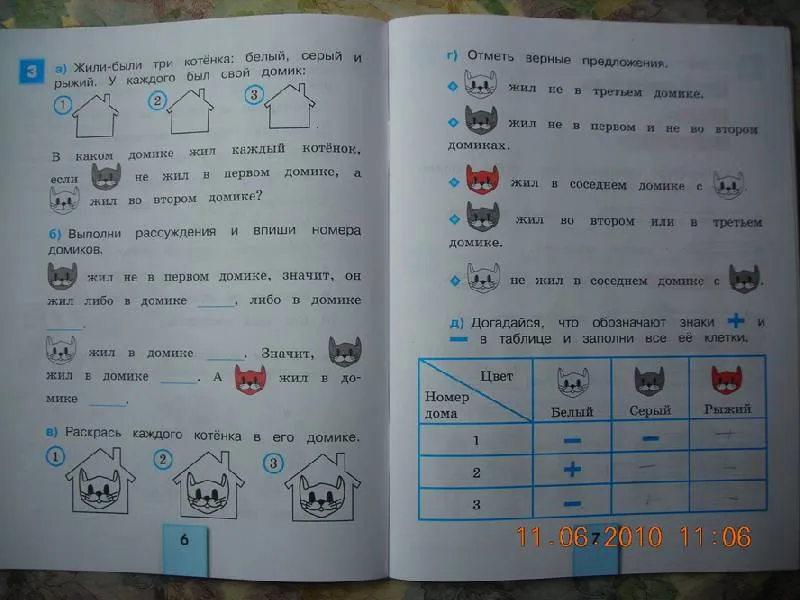 3
а) Жили-были три котёнка: белый, серый и
рыжий. У каждого был свой домик:
1 2 3
В каком домике жил каждый котёнок,
если не жил в первом домике, а
жил во втором домике?
б) Выполни рассуждения и впиши номера
домиков.
жил не в первом домике, значит, он
жил либо в домике _____, либо в домике
_____.
жил в домике _____. Значит,
жил в домике _____. А жил в до-
мике _____.
в) Раскрась каждого котёнка в его домике.
1 2 3
6
г) Отметь верные предложения.
жил не в третьем домике.
жил не в первом и не во втором
домиках.
жил в соседнем домике с .
жил во втором или в третьем
домике.
не жил в соседнем домике с .
д) Догадайся, что обозначают знаки + и
− в таблице и заполни все её клетки.
Цвет
Номер
дома
Белый Серый Рыжий
1 − − +
2 + − −
3 − + −
7
11.06.2010 11:06